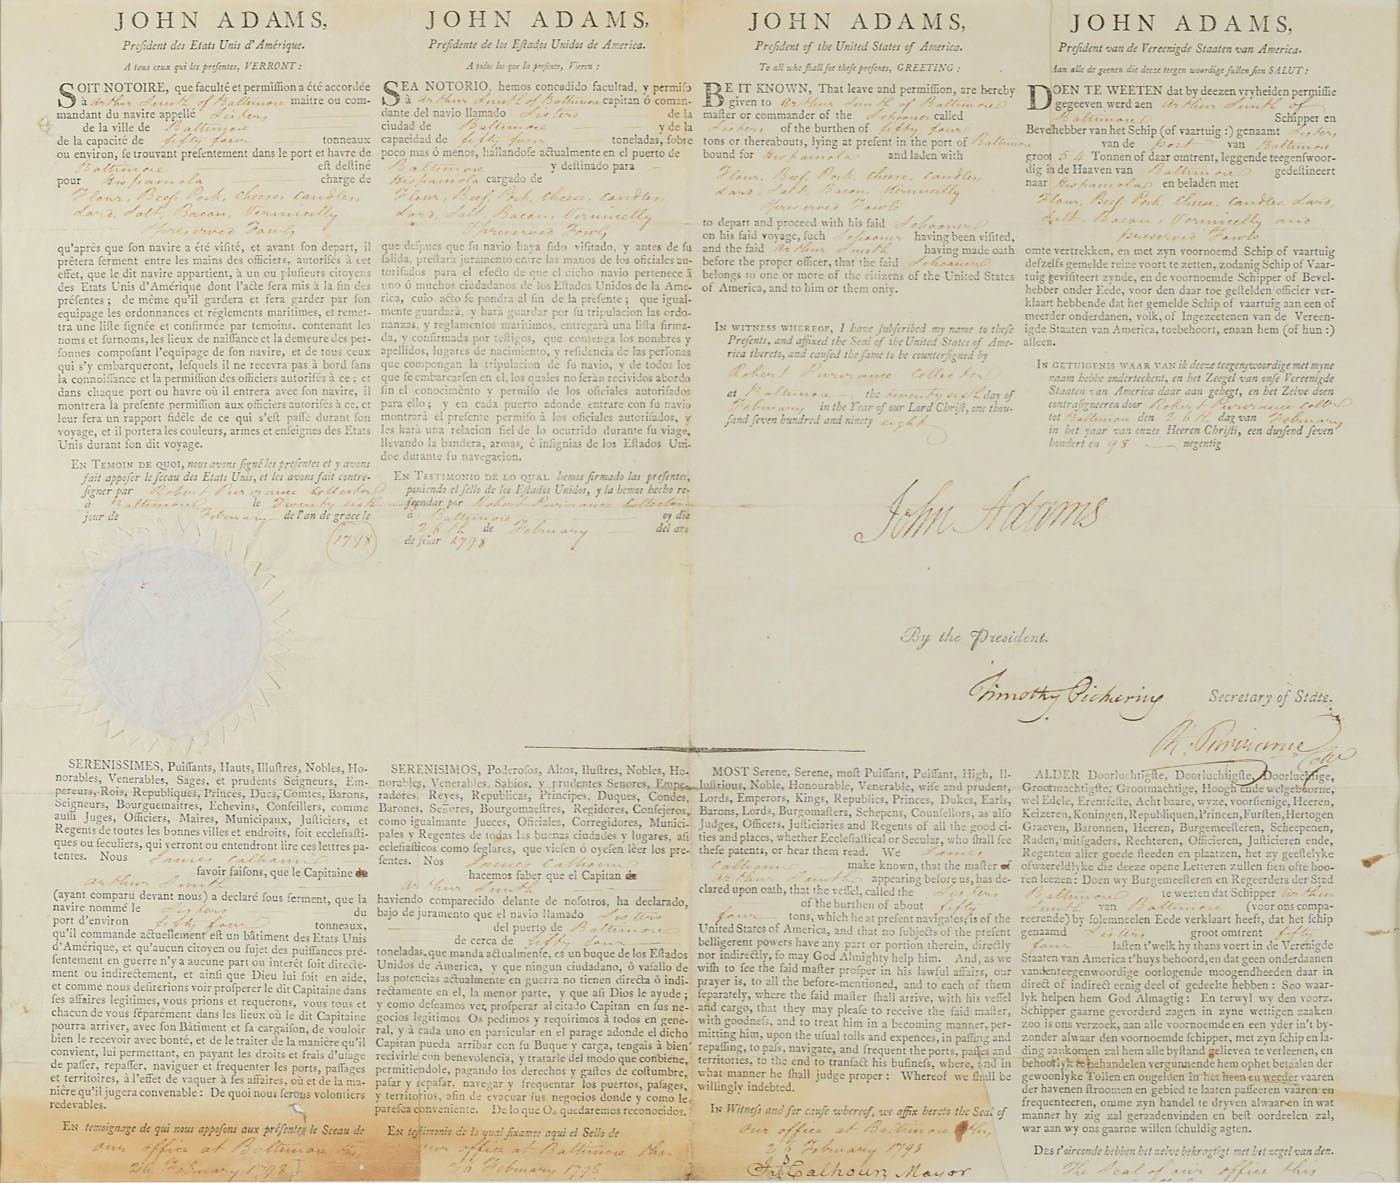 JOHN ADAMS,
President des Etats Unis d'Amérique.
A tous ceux qui les presentes, VERRONT:
SOIT NOTOIRE, que faculté et permission a été accordée
à Arthur Smith of Baltimore maitre ou com-
mandant du navire appellé Sisters
de la ville de Baltimore
de la capacité de fifty four tonneaux
ou environ, se trouvant presentement dans le port et havre de
Baltimore est destiné
pour Hispaniola charge de
Flour, Beef, Pork, Cheese, Candles,
Lard, Salt, Bacon, Vermicelly
& preserved Fowls
qu'après que son navire a été visité, et avant son depart, il
prêtera serment entre les mains des officiers, autorisés à cet
effet, que le dit navire appartient, à un ou plusieurs citoyens
des Etats Unis d'Amérique dont l'acte sera mis à la fin des
présentes; de même qu'il gardera et fera garder par son
equipage les ordonnances et réglements maritimes, et remet-
tra une liste signée et confirmée par temoins, contenant les
noms et surnoms, les lieux de naissance et la demeure des per-
sonnes composant l'equipage de son navire, et de tous ceux
qui s'y embarqueront, lesquels il ne recevra pas à bord sans
la connoissance et la permission des officiers autorisés à ce; et
dans chaque port ou havre où il entrera avec son navire, il
montrera la présente permission aux officiers autorisés à ce, et
leur fera un rapport fidèle de ce qui s'est passé durant son
voyage, et il portera les couleurs, armes et enseignes des Etats
Unis durant son dit voyage.
EN TEMOIN DE QUOI, nous avons signé les presentes et y avons
fait apposer le sceau des Etats Unis, et les avons fait contre-
signer par Robert Purviance Collector
à Baltimore le Twenty sixth
jour de February de l'an de grace le
1798
JOHN ADAMS,
Presidente de los Estados Unidos de America.
A todos los que la presente, Vieren:
SEA NOTORIO, hemos concedido facultad, y permiso
à Arthur Smith of Baltimore capitan ò coman-
dante del navio llamado Sisters de la
ciudad de Baltimore y de la
capacidad de fifty four toneladas, sobre
poco mas ó menos, hallandose actualmente en el puerto de
Baltimore y destinado para
Hispaniola cargado de
Flour, Beef, Pork, Cheese, Candles,
Lard, Salt, Bacon, Vermicelly
& preserved Fowls
que despues que su navio haya sido visitado, y antes de su
salida, prestara juramento entre las manos de los oficiales au-
torisados para el efecto de que el dicho navio pertenece à
uno ó muchos ciudadanos de los Estados Unidos de la Ame-
rica, cuio acto se pondra al fin de la presente; que igual-
mente guardará, y hará guardar por su tripulacion las ordo-
nanzas, y reglamentos maritimos, entregará una lista firma-
da, y confirmada por testigos, que contenga los nombres y
apellidos, lugares de nacimiento, y residencia de las personas
que compongan la tripulacion de su navio, y de todos los
que se embarcasen en el, los quales no serán recividos abordo
sin el conocimiento y permiso de los oficiales autorisados
para ello; y en cada puerto adonde entrare con su navio
montrará el presente permiso à los oficiales autorisados, y
les hará una relacion fiel de lo ocurrido durante su viage,
llevando la bandera, armas, é insignias de los Estados Uni-
dos durante su navegacion.
EN TESTIMONIO DE LO QUAL hemos firmado las presentes,
poniendo el sello de los Estados Unidos, y la hemos hecho re-
frendar por Robert Purviance Collector
à Baltimore oy dia
26th de February del año
de 1798
JOHN ADAMS,
President of the United States of America.
To all who shall see these presents, GREETING:
BE IT KNOWN, That leave and permission, are hereby
given to Arthur Smith of Baltimore
master or commander of the Schooner called
Sisters of the burthen of fifty four
tons or thereabouts, lying at present in the port of Baltimore
bound for Hispaniola and laden with
Flour, Beef, Pork, Cheese, Candles,
Lard, Salt, Bacon, Vermicelly
& preserved Fowls
to depart and proceed with his said Schooner
on his said voyage, such Schooner having been visited,
and the said Arthur Smith having made oath
before the proper officer, that the said Schooner
belongs to one or more of the citizens of the United States
of America, and to him or them only.
IN WITNESS WHEREOF, I have subscribed my name to these
Presents, and affixed the Seal of the United States of Ame-
rica thereto, and caused the same to be countersigned by
Robert Purviance Collector
at Baltimore the twenty sixth day of
February in the Year of our Lord Christ, one thou-
sand seven hundred and ninety eight
JOHN ADAMS,
President van de Vereenigde Staaten van America.
Aan alle de geenen die deeze teegen woordige sullen sien SALUT:
DOEN TE WEETEN dat by deezen vryheiden permissie
gegeeven werd aen Arthur Smith of
Baltimore Schipper en
Bevelhebber van het Schip (of vaartuig:) genaamt Sisters
van de port van Baltimore
groot 54 Tonnen of daar omtrent, leggende teegenswoor-
dig in de Haaven van Baltimore gedestineert
naar Hispaniola en beladen met
Flour, Beef, Pork, Cheese, Candles, Lard,
Salt, Bacon, Vermicelly and
preserved Fowls
omte vertrekken, en met zyn voornoemd Schip of vaartuig
defzelfs gemelde reize voort te zetten, zodanig Schip of Vaar-
tuig gevisiteert zynde, en de voornoemde Schipper of Bevel-
hebber onder Eede, voor den daar toe gestelden officier ver-
klaart hebbende dat het gemelde Schip of vaartuig aan een of
meerder onderdanen, volk, of Ingezeetenen van de Vereen-
igde Staaten van America, toebehoort, enaan hem (of hun:)
alleen.
IN GETUIGENIS WAAR VAN ik deeze teegenwoordige met myne
naam hebbe onderteekent, en het Zeegel van onse Vereenigde
Staaten van America daar aan gehegt, en het Zelve doen
contrasigneeren door Robert Purviance Collr
tot Baltimore den 26th dag van February
in het jaar van onzes Heeren Christi, een duysend seven
hondert en 98 negentig
John Adams
By the President.
Timothy Pickering Secretary of State.
R. Purviance Collr
SERENISSIMES, Puissants, Hauts, Illustres, Nobles, Ho-
norables, Venerables, Sages, et prudents Seigneurs, Em-
pereurs, Rois, Republiques, Princes, Ducs, Comtes, Barons,
Seigneurs, Bourguemaitres, Echevins, Conseillers, comme
aussi Juges, Officiers, Maires, Municipaux, Justiciers, et
Regents de toutes les bonnes villes et endroits, soit ecclesiasti-
ques ou seculiers, qui verront ou entendront lire ces lettres pa-
tentes. Nous James Calhoun
savoir faisons, que le Capitaine de
Arthur Smith
(ayant comparu devant nous) a declaré sous serment, que la
navire nommé le Sisters du
port d'environ fifty four tonneaux,
qu'il commande actuellement est un bâtiment des Etats Unis
d'Amérique, et qu'aucun citoyen ou sujet des puissances pré-
sentement en guerre n'y a aucune part ou interêt soit directe-
ment ou indirectement, et ainsi que Dieu lui soit en aide,
et comme nous desirerions voir prosperer le dit Capitaine dans
ses affaires legitimes, vous prions et requérons, vous tous et
chacun de vous séparément dans les lieux où le dit Capitaine
pourra arriver, avec son Bâtiment et sa cargaison, de vouloir
bien le recevoir avec bonté, et de le traiter de la manière qu'il
convient, lui permettant, en payant les droits et frais d'usage
de passer, repasser, naviguer et frequenter les ports, passages
et territoires, à l'effet de vaquer à ses affaires, où et de la ma-
nière qu'il jugera convenable: De quoi nous serons volontiers
redevables.
EN temoignage de qui nous apposons aux présentes le Sceau de
our office at Baltimore this
26 February 1798
SERENISIMOS, Poderosos, Altos, Ilustres, Nobles, Ho-
norables, Venerables, Sabios, y prudentes Senores, Empe-
radores, Reyes, Republicas, Principes, Duques, Condes,
Barones, Señores, Bourgomaestres, Regidores, Consejeros,
como igualmante Jueces, Oficiales, Corregidores, Munici-
pales y Regentes de todas las buenas ciudades y lugares, asi
ecclesiasticos como seglares, que viesen ó oyesen leer los pre-
sentes. Nos James Calhoun
hacemos saber que el Capitan de
Arthur Smith
haviendo comparecido delante de nosotros, ha declarado,
bajo de juramento que el navio llamado Sisters
del puerto de Baltimore
de cerca de fifty four
toneladas, que manda actualmente, es un buque de los Estados
Unidos de America, y que ningun ciudadano, ó vasallo de
las potencias actualmente en guerra no tienen directa ó indi-
rectamente en el, la menor parte, y que asi Dios le ayude;
y como deseamos ver, prosperar al citado Capitan en sus ne-
gocios legitimos Os pedimos y requirimos à todos en gene-
ral, y à cada uno en particular en el parage adonde el dicho
Capitan pueda arribar con su Buque y carga, tengais à bien
recivirle con benevolencia, y tratarle del modo que conbiene,
permitiendole, pagando los derechos y gastos de costumbre,
pasar y repasar, navegar y frequentar los puertos, pasages,
y territorios, afin de evacuar sus negocios donde y como le
paresca conveniente. De lo que Os quedaremos reconocidos.
EN testimonio de la qual fixamos aqui el Sello de
our office at Baltimore this
26 February 1798
MOST Serene, Serene, most Puissant, Puissant, High, Il-
lustrious, Noble, Honourable, Venerable, wise and prudent,
Lords, Emperors, Kings, Republics, Princes, Dukes, Earls,
Barons, Lords, Burgomasters, Schepens, Counsellors, as also
Judges, Officers, Justiciaries and Regents of all the good ci-
ties and places, whether Ecclesiastical or Secular, who shall see
these patents, or hear them read. We James
Calhoun make known, that the master of
Arthur Smith appearing before us, has de-
clared upon oath, that the vessel, called the Sisters
of the burthen of about fifty
four tons, which he at present navigates, is of the
United States of America, and that no subjects of the present
belligerent powers have any part or portion therein, directly
nor indirectly, so may God Almighty help him. And, as we
wish to see the said master prosper in his lawful affairs, our
prayer is, to all the before-mentioned, and to each of them
separately, where the said master shall arrive, with his vessel
and cargo, that they may please to receive the said master,
with goodness, and to treat him in a becoming manner, per-
mitting him, upon the usual tolls and expences, in passing and
repassing, to pass, navigate, and frequent the ports, passes and
territories, to the end to transact his business, where, and in
what manner he shall judge proper: Whereof we shall be
willingly indebted.
IN Witness and for cause whereof, we affix hereto the Seal of
our office at Baltimore this
26 February 1798
Jas Calhoun Mayor
ALDER Doorluchtigste, Doorluchtigste, Doorluchtige,
Grootmachtigste, Grootmachtige, Hoogh Ende welgeboorne,
wel Edele, Erentfeste, Acht baare, wyze, voorsienige, Heeren,
Keizeren, Koningen, Republiquen, Princen, Fursten, Hertogen
Graeven, Baronnen, Heeren, Burgemeesteren, Scheepenen,
Raden, mitsgaders, Rechteren, Officieren, Justicieren ende,
Regenten aller goede steeden en plaatzen, het zy geestelyke
ofwereldlyke die deeze opene Letteren zullen sien ofte hoo-
ren leezen: Doen wy Burgemeesteren en Regeerders der Stad
Baltimore te weeten dat Schipper Arthur
Smith van Baltimore (voor ons compa-
reerende) by solemneelen Eede verklaart heeft, dat het schip
genaamd Sisters groot omtrent fifty
four lasten t'welk hy thans voert in de Verenigde
Staaten van America t'huys behoord, en dat geen onderdaanen
vandenteegenwoordige oorlogende moogendheeden daar in
direct of indirect eenig deel of gedeelte hebben: Soo waar-
lyk helpen hem God Almagtig: En terwyl wy den voorz.
Schipper gaarne gevorderd zagen in zyne wettigen zaaken
zoo is ons verzoek, aan alle voornoemde en een yder in't by-
zonder alwaar den voornoemde schipper, met zyn schip en la-
ding aankomen zal hem alle bystand gelieven te verleenen, en
behoorlyk te behandelen vergunnende hem ophet betaalen der
gewoonlyke Tollen en ongelden in het heen en weeder vaaren
der havenen stroomen en gebied te laaten passeeren vaaren en
frequenteeren, omme zyn handel te dryven alwaaren in wat
manner hy zig zal gerzadenvinden en best oordeelen zal,
war aan wy ons gaarne willen schuldig agten.
DES t'oirconde hebben het zelve bekrogtigt met het zegel van den.
The Seal of our office this